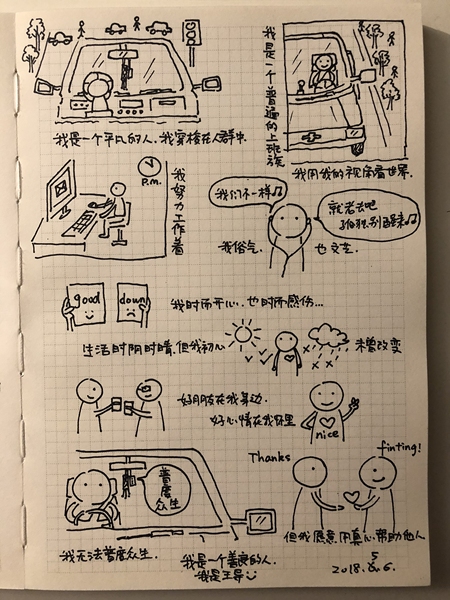 我是一个平凡的人,我穿梭在人群中.
我是一个普遍的上班族
我用我的视角看世界.
P.m.
我努力工作着
我们不一样♫
就老去吧
孤独别醒来♫
我俗气.
也文艺.
good
down
我时而开心.也时而感伤...
生活时阴时晴.但我初心
未曾改变
好朋友在我身边.
好心情在我怀里
nice
普度
众生
Thanks
finting!
我无法普度众生.
但我愿意用真心帮助他人
我是一个善良的人.
我是王异
2018.5.6.